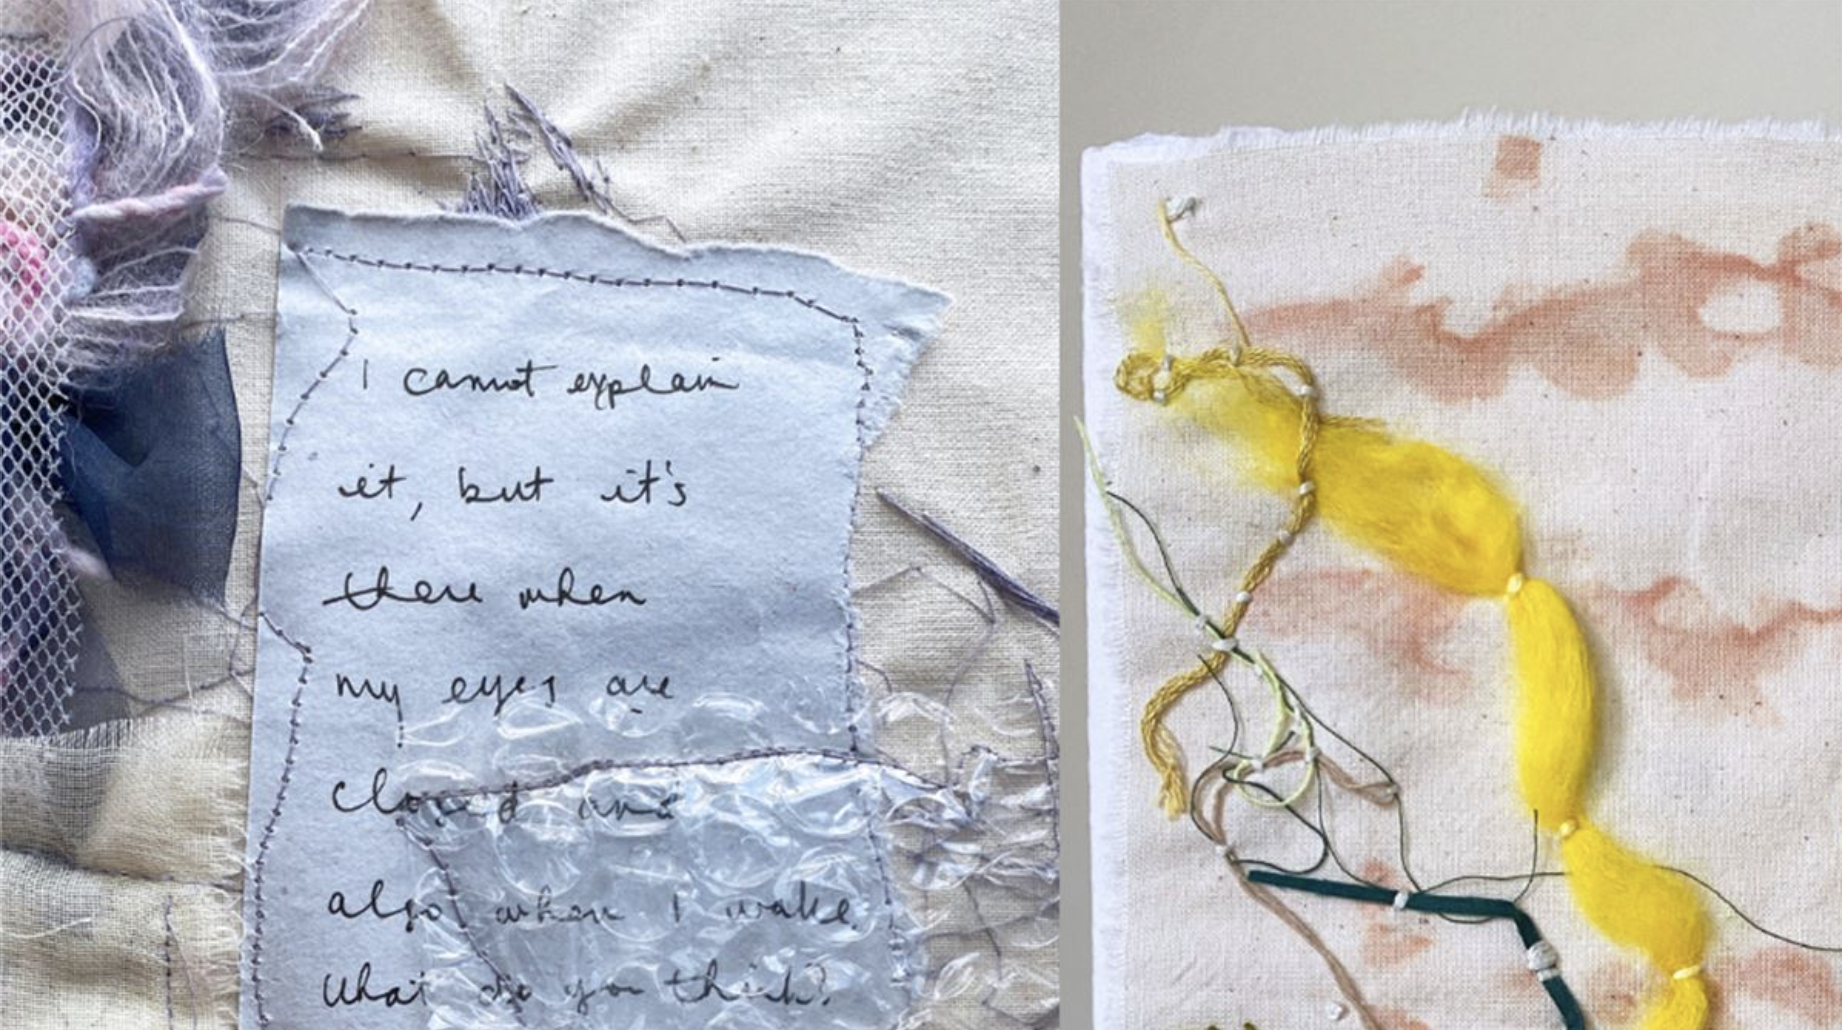 I cannot explain
it, but it's
there when
my eyes are
closed and
also when I wake
What do you think?